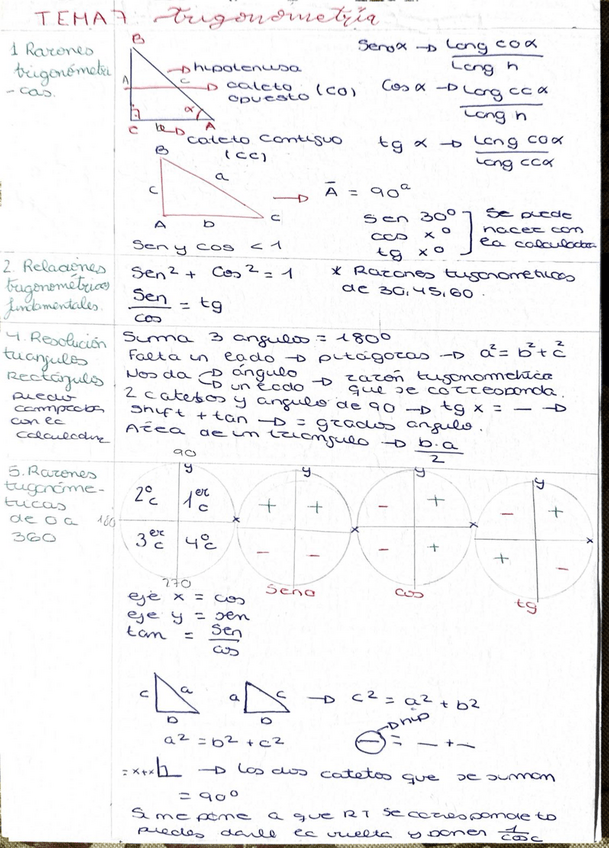 TEMA 7 trigonometría
1 Razones
trigonométri
-cas.
B
→ hipotenusa
c
→ cateto
opuesto (CO)
α
C
A
→ cateto contiguo
(CC)
Senα → Long COα
Long h
Cos α → Long CCα
Long h
tg α → Long COα
Long CCα
B
a
c
A b C
→ Ā = 90º
Sen 30º
cos xº
tg xº
Se puede
hacer con
la calculadora
Sen y cos < 1
2. Relaciones
trigonométricas
fundamentales.
Sen² + Cos² = 1
* Razones trigonométricas
de 30, 45, 60.
Sen
cos
= tg
4. Resolución
triangulos
Rectángulos
puedo
comprobar
con la
calculadora
Suma 3 angulos = 180º
Falta un lado → pitágoras → a² = b² + c²
Nos da → ángulo
→ un lado → razón trigonometrica
que se corresponda.
2 catetos y angulo de 90 → tg x = — →
Shift + tan → = grados angulo.
Area de un triangulo → b·a
2
5. Razones
trigonóme-
tricas
de 0 a
360
90
180
270
y
x
2º c
1er c
3er c
4º c
y
x
+ +
- -
seno
y
x
- +
- +
cos
y
x
- +
+ -
tg
eje x = cos
eje y = sen
tan = Sen
cos
c a
b
a² = b² + c²
a c
b
→ c² = a² + b²
→ hip
= — + —
→ Los dos catetos que se suman
= 90º
Si me pone a que RT se corresponde to
puedes darle la vuelta y poner 1
cosc